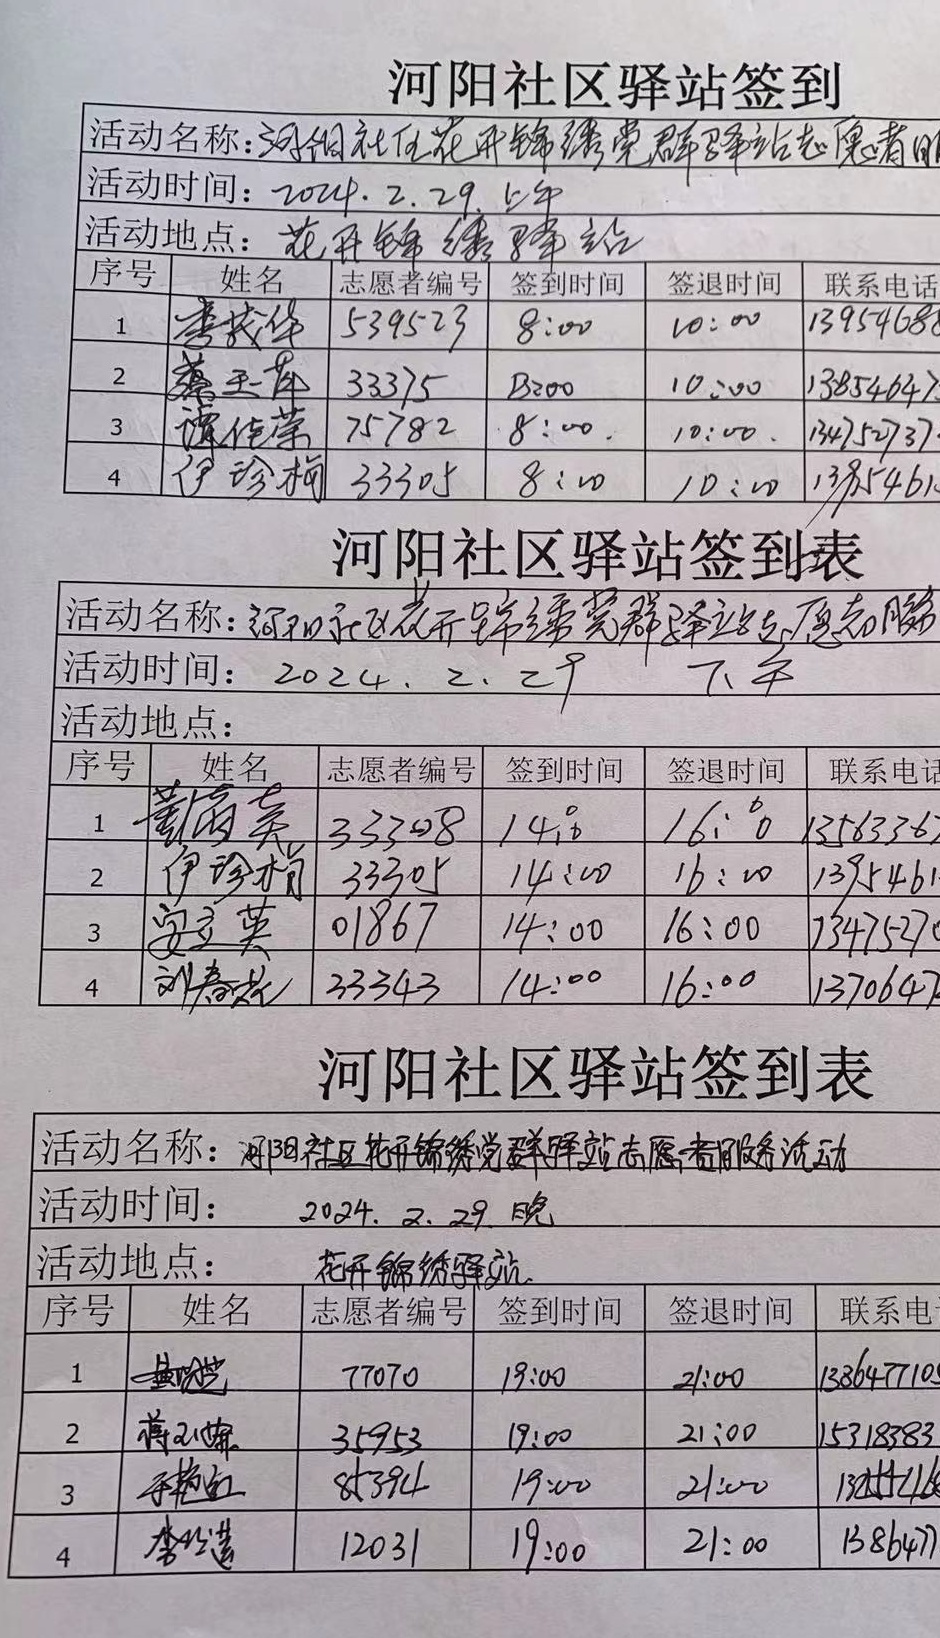 河阳社区驿站签到
活动名称:河阳社区花开锦绣党群驿站志愿者服
活动时间: 2024.2.29.上午
活动地点: 花开锦绣驿站
序号 姓名 志愿者编号 签到时间 签退时间 联系电话
1 李成华 539523 8:00 10:00 13954688
2 33375 8:00 10:00 13854647
3 谭佳荣 75782 8:00. 10:00. 134752737
4 伊珍梅 33305 8:00 10:00 1395461
河阳社区驿站签到表
活动名称:河阳社区花开锦绣党群驿站志愿志服
活动时间: 2024.2.29 下午
活动地点:
序号 姓名 志愿者编号 签到时间 签退时间 联系电话
1 33308 14:00 16:00 13563367
2 伊珍梅 33305 14:00 16:00 1395461
3 安立英 01867 14:00 16:00 13475270
4 刘春花 33343 14:00 16:00 1370647
河阳社区驿站签到表
活动名称:河阳社区花开锦绣党群驿站志愿者服务活动
活动时间: 2024.2.29.晚
活动地点: 花开锦绣驿站.
序号 姓名 志愿者编号 签到时间 签退时间 联系电
1 77070 19:00 21:00 1386477105
2 35953 19:00 21:00 15318383
3 于艳红 85394 19:00 21:00
4 12031 19:00 21:00 1386477